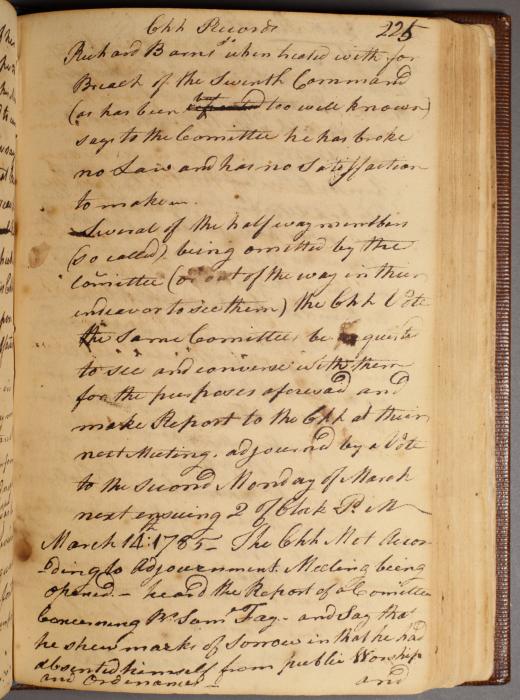 Chh Records 225
Richard Barns Jr when treated with for
Breach of the Seventh Command
(as has been but too well known)
says to the Comittee he has broke
no Law and has no Satisffaction
to make
Several of the half way members
(so called) being omitted by the
Comittee (or out of the way in their
endeavor to see them) the Chh Vote
the Same Comittee, be requested
to see and converse with them
for the purposes aforesaid and
make Report to the Chh at their
next Meeting. adjourned by a Vote
to the Second Monday of March
next ensuing 2 of Clock P. M
March 14th 1785 - The Chh Met Accor-
-ding to Adjournment Meeting being
opened - heard the Report of a Comittee
Concerning Saml Fay - and Say that
he shew marks of Sorrow in that he had
absented himself from public Worship
and Ordenances - and